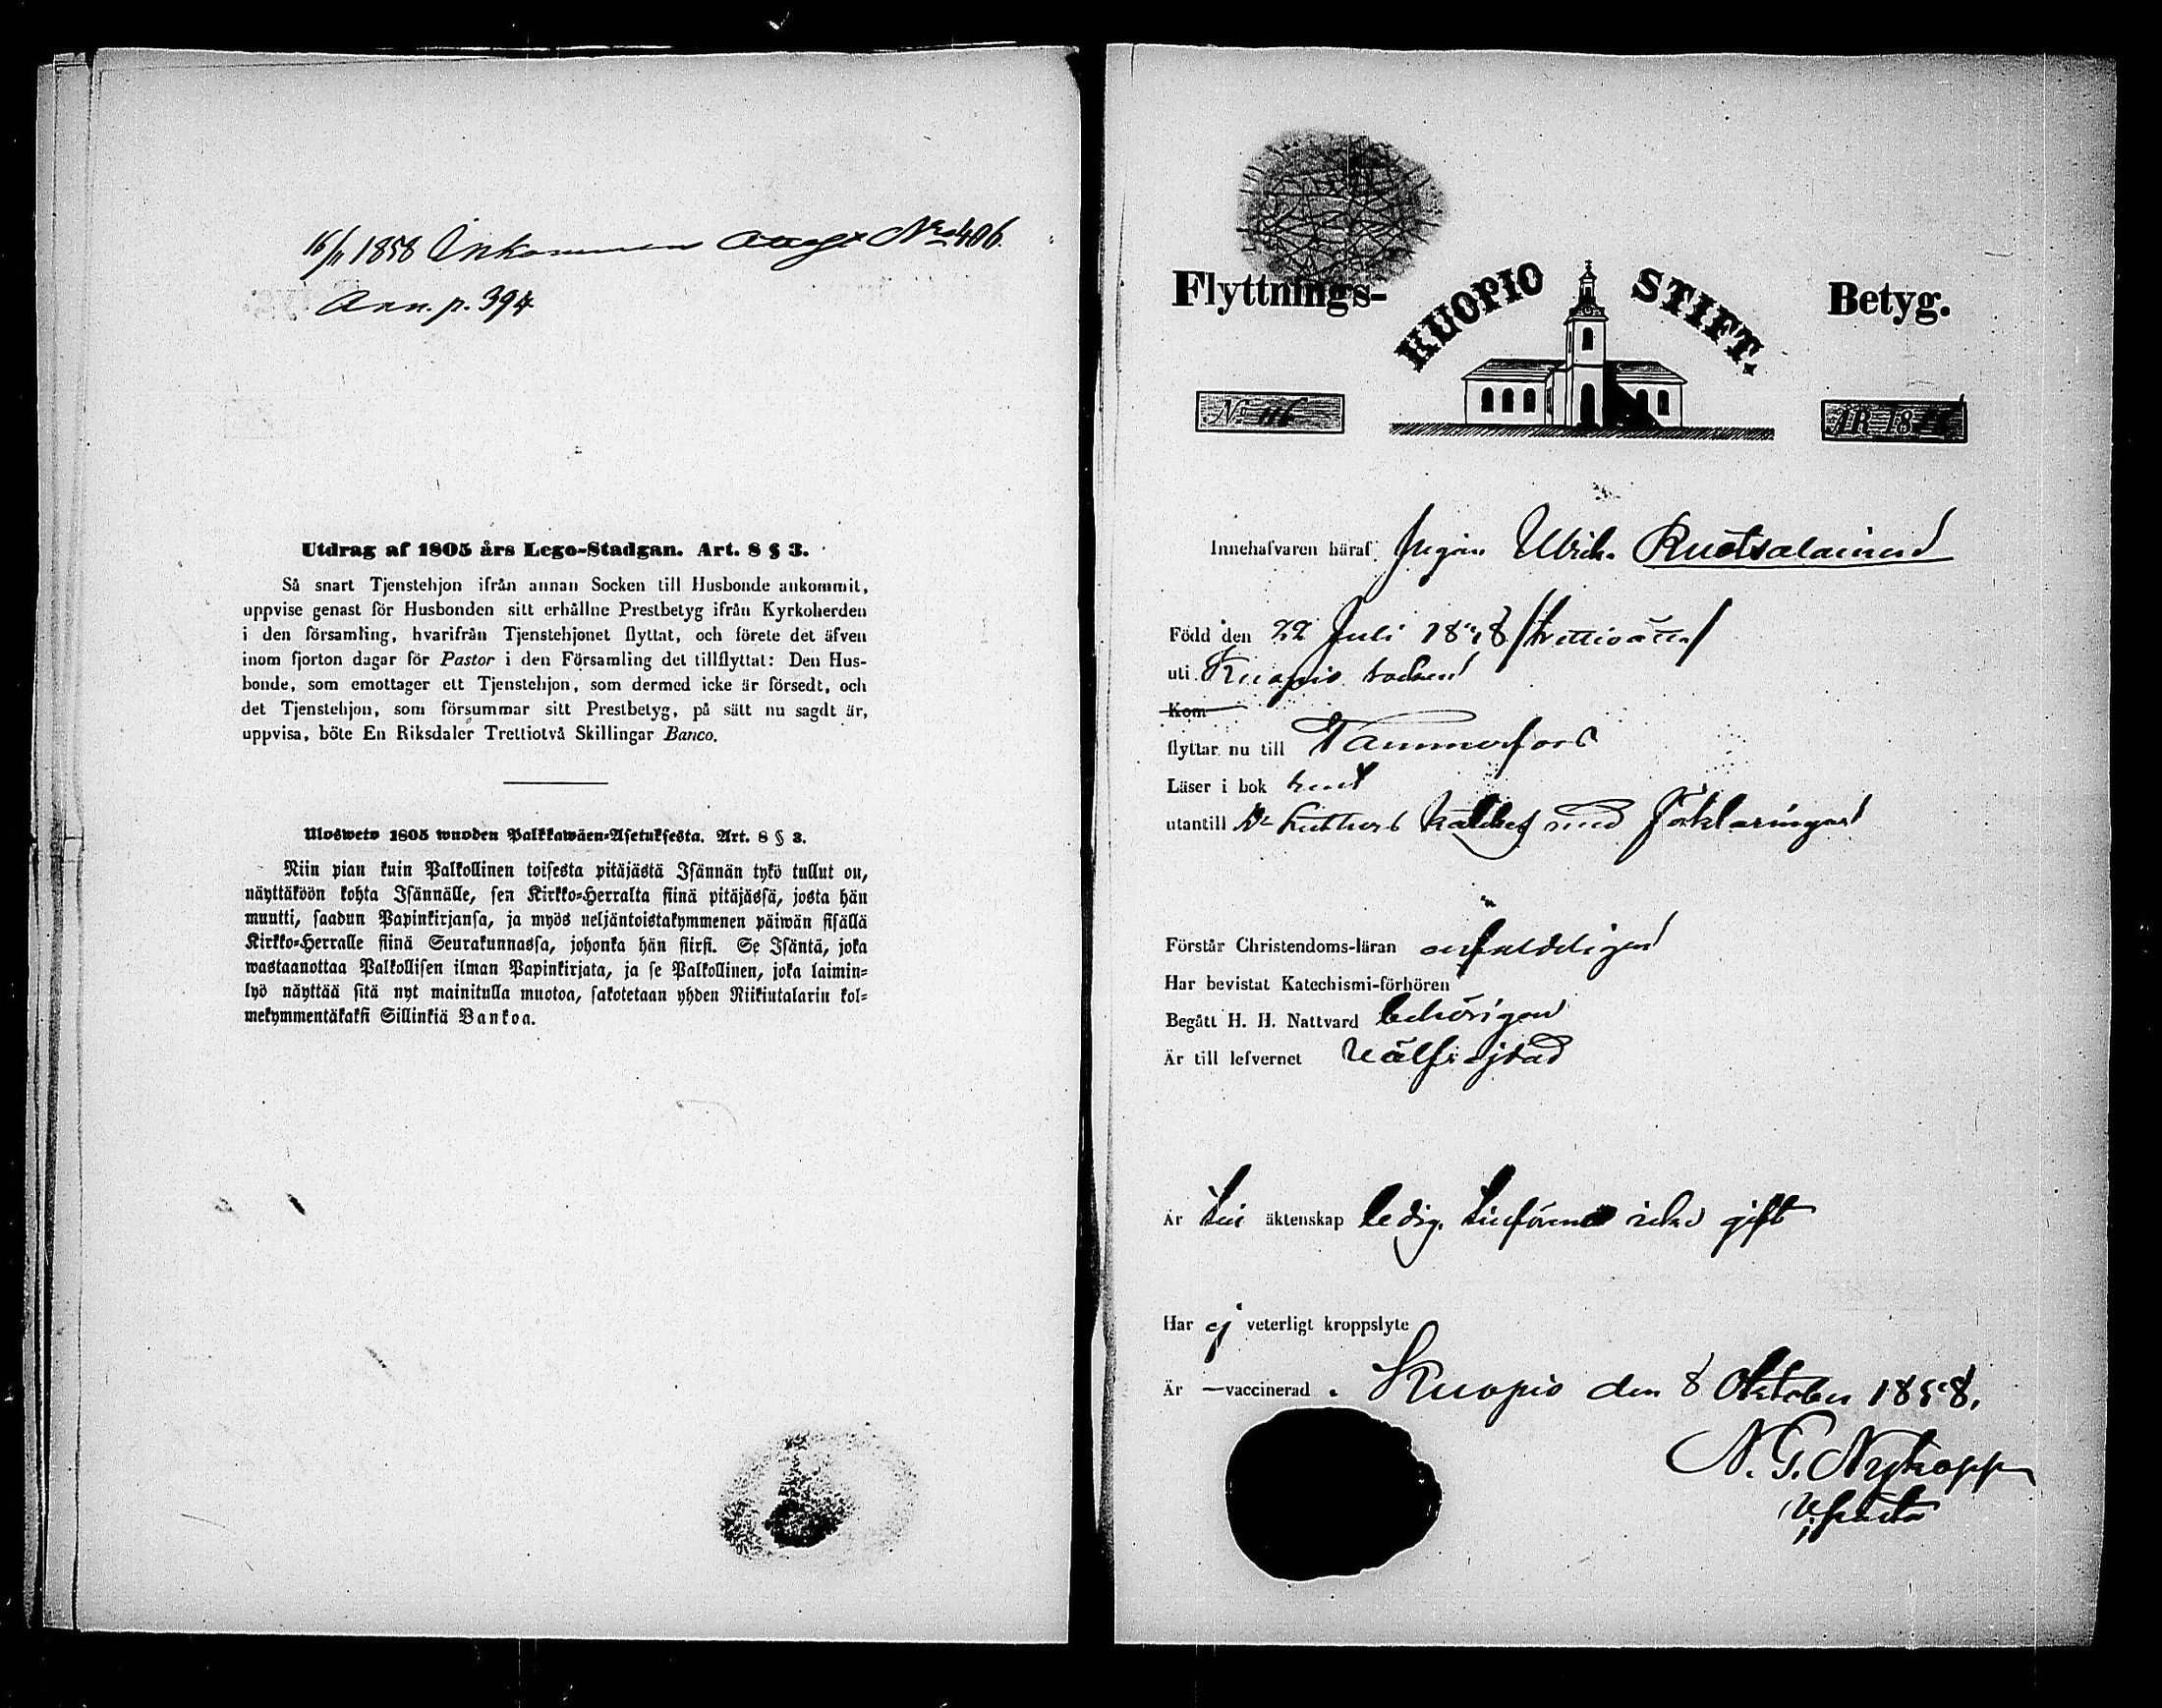 16/11 1858 Inkommen Attest No 406.
Ann. p. 394
Utdrag af 1805 års Lego-Stadgan. Art. 8 § 3.
Så snart Tjenstehjon ifrån annan Socken till Husbonde ankommit,
uppvise genast för Husbonden sitt erhållne Prestbetyg ifrån Kyrkoherden
i den församling, hvarifrån Tjenstehjonet flyttat, och förete det äfven
inom fjorton dagar för Pastor i den Församling det tillflyttat: Den Hus-
bonde, som emottager ett Tjenstehjon, som dermed icke är försedt, och
det Tjenstehjon, som försummar sitt Prestbetyg, på sätt nu sagdt är,
uppvisa, böte En Riksdaler Trettiotvå Skillingar Banco.
Ulosweto 1805 wuoden Palkkawäen-Asetuksesta. Art. 8 § 3.
Niin pian kuin Palkollinen toisesta pitäjästä Isännän tykö tullut on,
näyttäköön kohta Isännälle, sen Kirkko-Herralta siinä pitäjässä, josta hän
muutti, saadun Papinkirjansa, ja myös neljäntoistakymmenen päiwän sisällä
Kirkko-Herralle siinä Seurakunnassa, johonka hän siirsi. Se Isäntä, joka
wastaanottaa Palkollisen ilman Papinkirjata, ja se Palkollinen, joka laimin-
lyö näyttää sitä nyt mainitulla muotoa, sakotetaan yhden Riikintalarin kol-
mekymmentäkaksi Sillinkiä Bankoa.
Flyttnings- KUOPIO STIFT. Betyg.
No 116 ÅR 18
Innehafvaren häraf Pigan Ulrik. Ruotsalainen
Född den 22 Juli 1828 /trettio åtta/
uti Kuopio socken
Kom
flyttar nu till Tammerfors
Läser i bok rent
utantill Dr Lutheri Katekes med Förklaringen
Förstår Christendoms-läran enfaldeligen
Har bevistat Katechismi-förhören
Begått H. H. Nattvard behörigen
Är till lefvernet välfrejdad
Är till äktenskap ledig, tillförene icke gift
Har ej veterligt kroppslyte
Är — vaccinerad. Kuopio den 8 Oktober 1858.
N. G. Nykopp